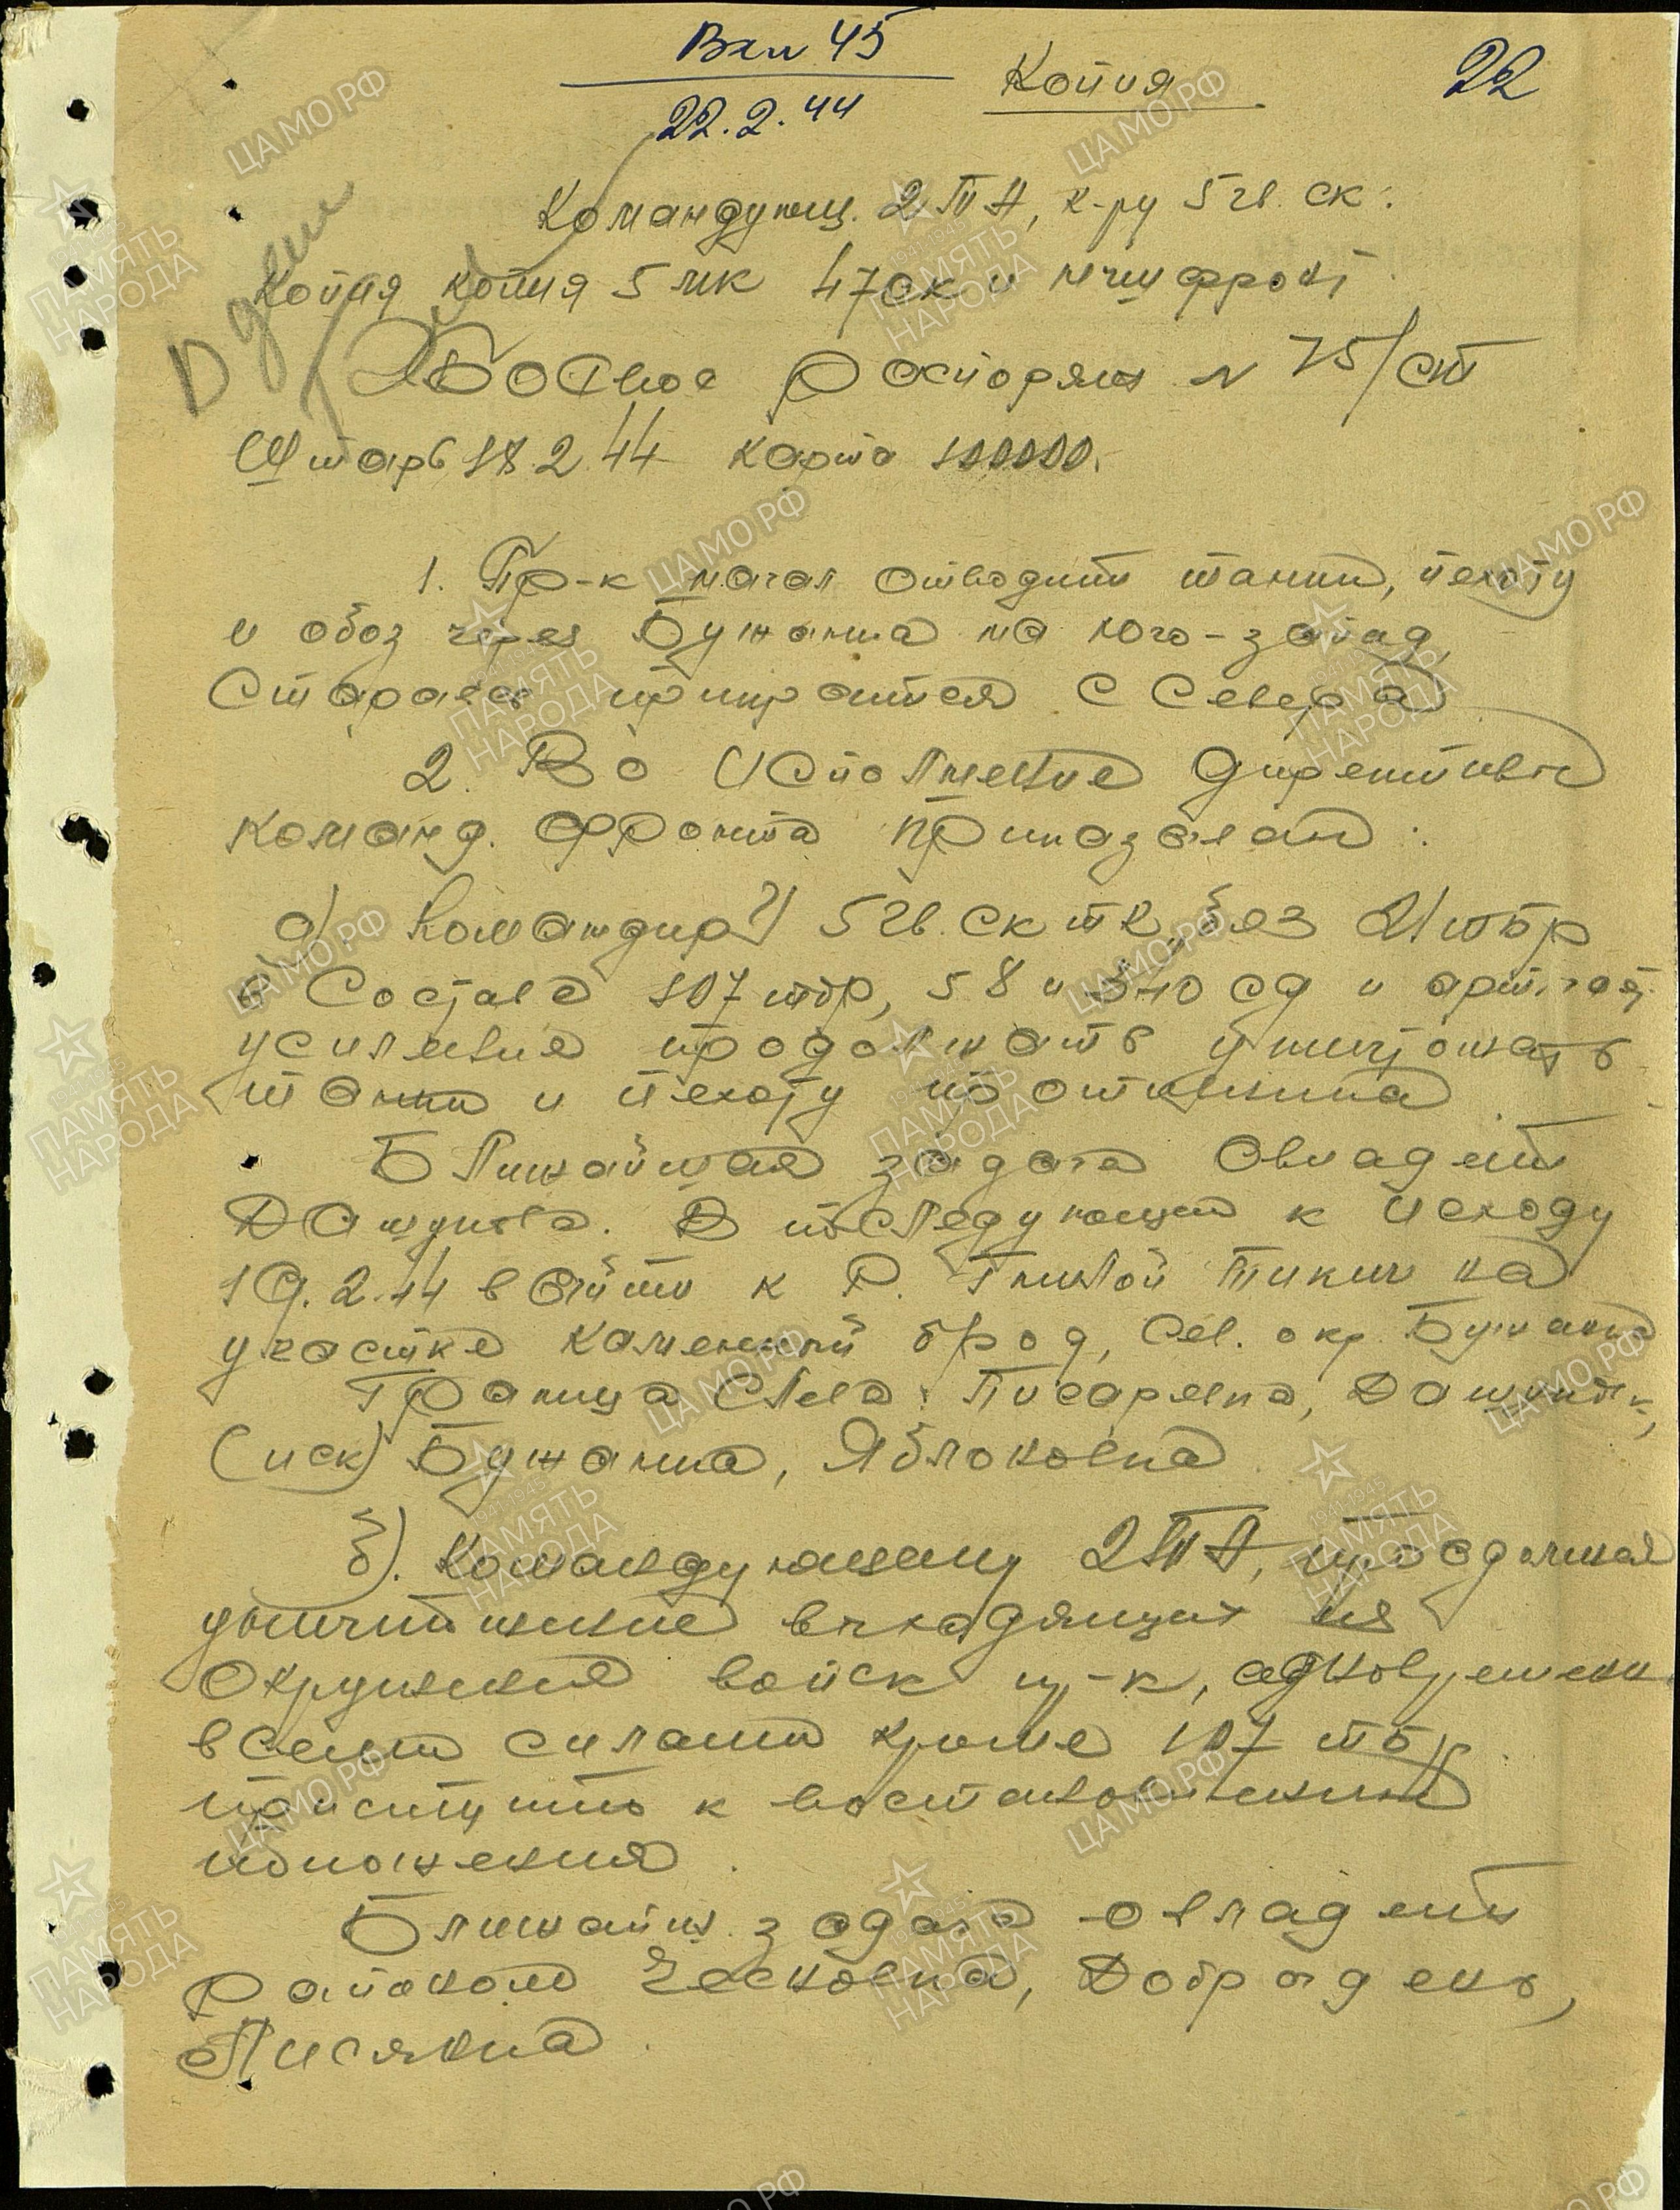 Вхи 45
22.2.44
Копия
22
Командующ. 2 ТА, к-ру 5 гв. ск.
Копия копия 5 мк 47 ск и нчш фронт
Боевое распоряж N 75/ст
Штарб 18.2.44 карта 100000.
1. Пр-к начал отводить танки, пехоту
и обоз через Бужанка на юго-запад,
Стараясь прикрыться с Севера
2. Во исполнение директивы
команд. фронта приказываю:
а). Командиру 5 гв. ск без 21 тбр
в составе 107 тбр, 58 и 340 сд и арт.
усиления продолжать уничтожать
танки и пехоту противника
Ближайшая задача Овладеть
Дашуковка. В последующем к исходу
19.2.44 выйти к р. Гнилой Тикич на
участке Каменный брод, Сев. окр. Бужанка
Граница Слева: Писаревка, Дашуковк,
(иск) Бужанка, Яблоновка
б). Командующему 2 ТА, продолжая
уничтожение выходящих из
Окружения войск пр-к, одновременно
всеми силами кроме 107 тбр
приступить к восстановлению
положения.
Ближайш. задача овладеть
районом Чесновка, Добра,
Лисянка.